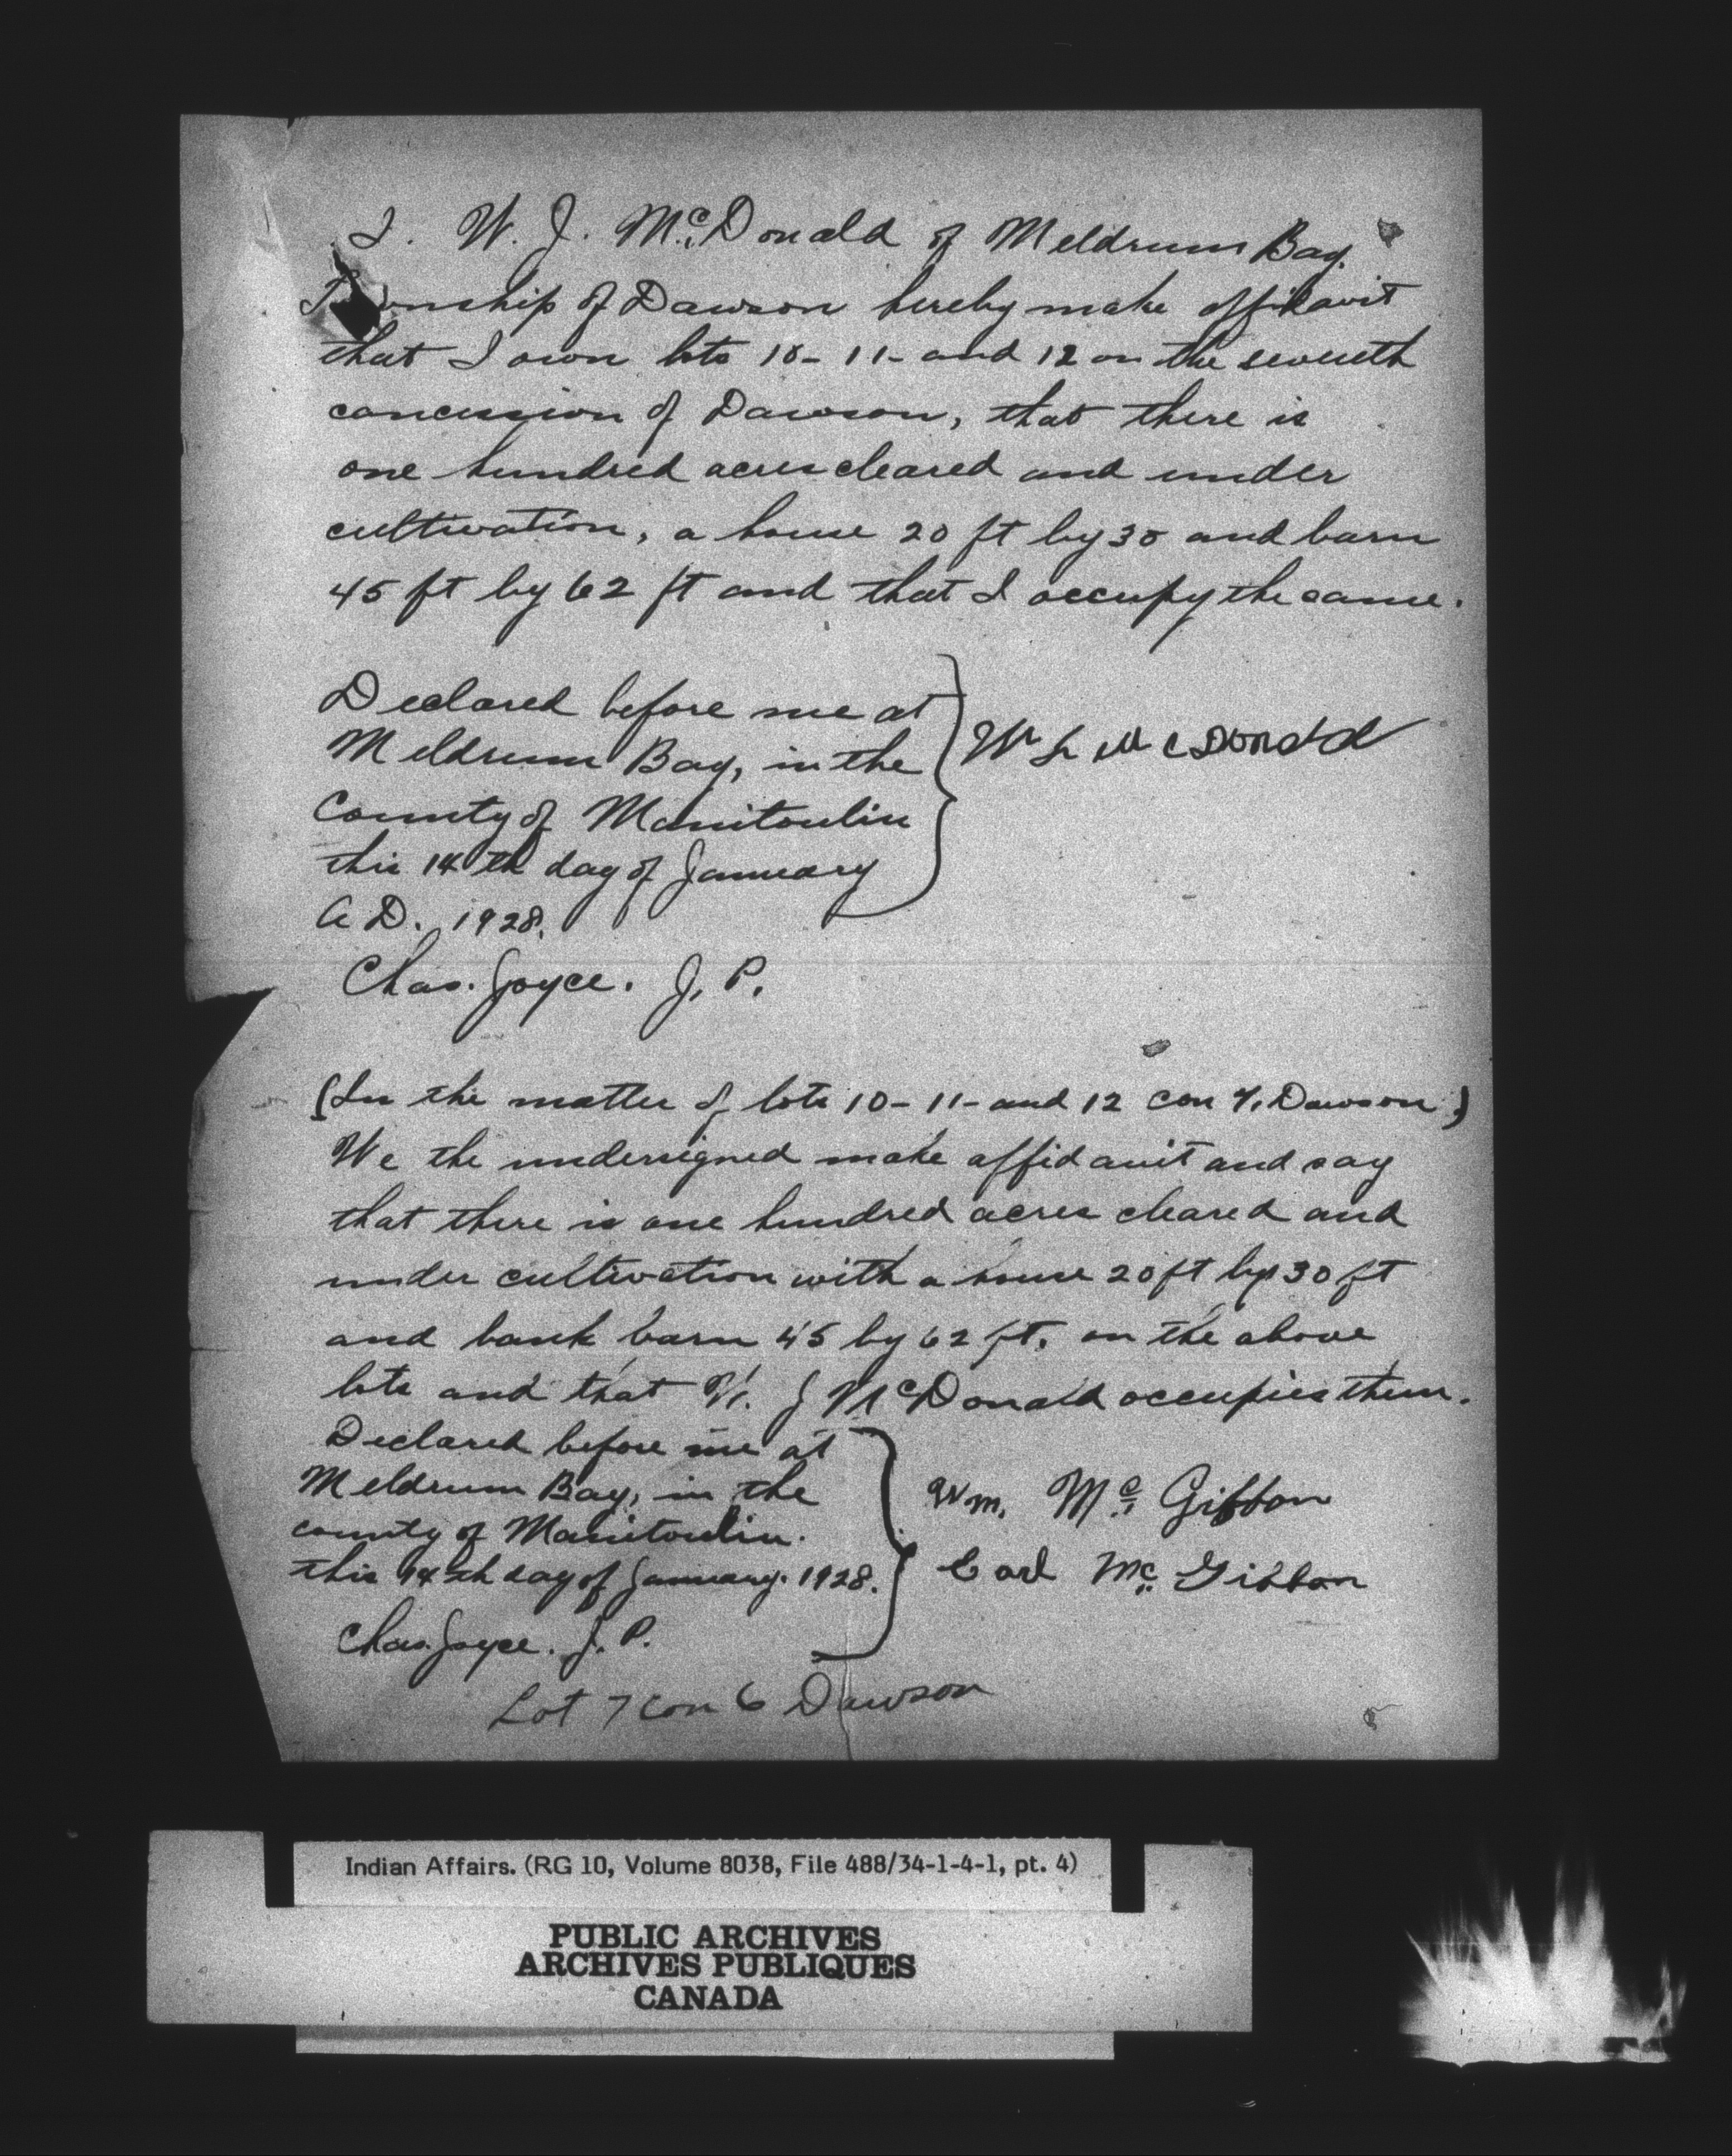 I. W. J. McDonald of Meldrum Bay.
Township of Dawson hereby make affidavit
that I own lots 10-11- and 12 on the seventh
concession of Dawson, that there is
one hundred acres cleared and under
cultivation, a house 20 ft by 30 and barn
45 ft by 62 ft and that I occupy the same.
Declared before me at
Meldrum Bay, in the
County of Manitoulin
this 14th day of January
A D. 1928.
W McDonald
Chas. Joyce. J. P.
(In the matter of lots 10-11- and 12 con 7, Dawson)
We the undersigned make affidavit and say
that there is one hundred acres cleared and
under cultivation with a house 20 ft by 30 ft
and bank barn 45 by 62 ft. on the above
lots and that W. J McDonald occupies them.
Declared before me at
Meldrum Bay, in the
county of Manitoulin.
this 14th day of January. 1928.
Wm. Mc Gibbon
Earl Mc Gibbon
Chas. Joyce. J. P.
Lot 7 Con 6 Dawson
Indian Affairs. (RG 10, Volume 8038, File 488/34-1-4-1, pt. 4)
PUBLIC ARCHIVES
ARCHIVES PUBLIQUES
CANADA